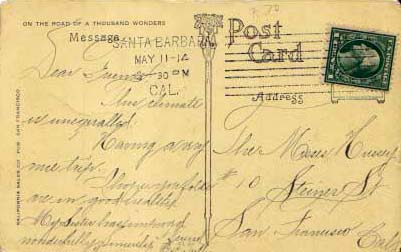 ON THE ROAD OF A THOUSAND WONDERS
Message
SANTA BARBARA
MAY 11-14
30 PM
CAL.
Post
Card
Address
Dear Friends
This climate
is unequalled.
Having a very
nice trip.
I hope you folks
are in good health.
My Sister has improved
wonderfully
The Misses Hussey
# 10 Steiner St
San Francisco
Calif
CALIFORNIA SALES CO. PUB. SAN FRANCISCO